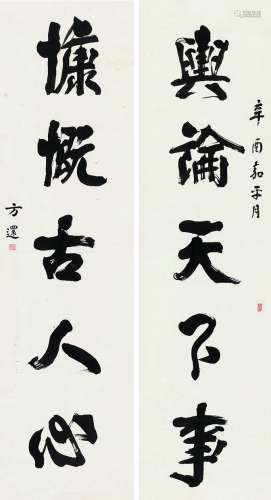 辛酉嘉平月
輿論天下事
慷慨古人心
方還